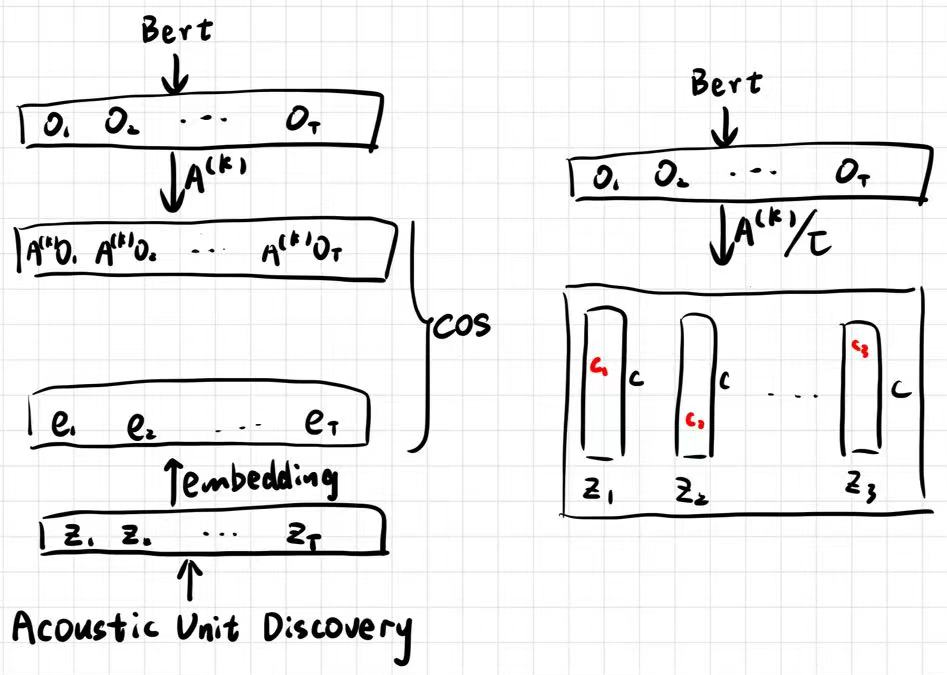 Bert
O₁ O₂ ... O_T
A^(k)
A^(k)O₁ A^(k)O₂ ... A^(k)O_T
cos
e₁ e₂ ... e_T
embedding
z₁ z₂ ... z_T
Acoustic Unit Discovery
Bert
O₁ O₂ ... O_T
A^(k)/τ
c₁ c c₂ c ... c₃ c
z₁ z₂ z₃